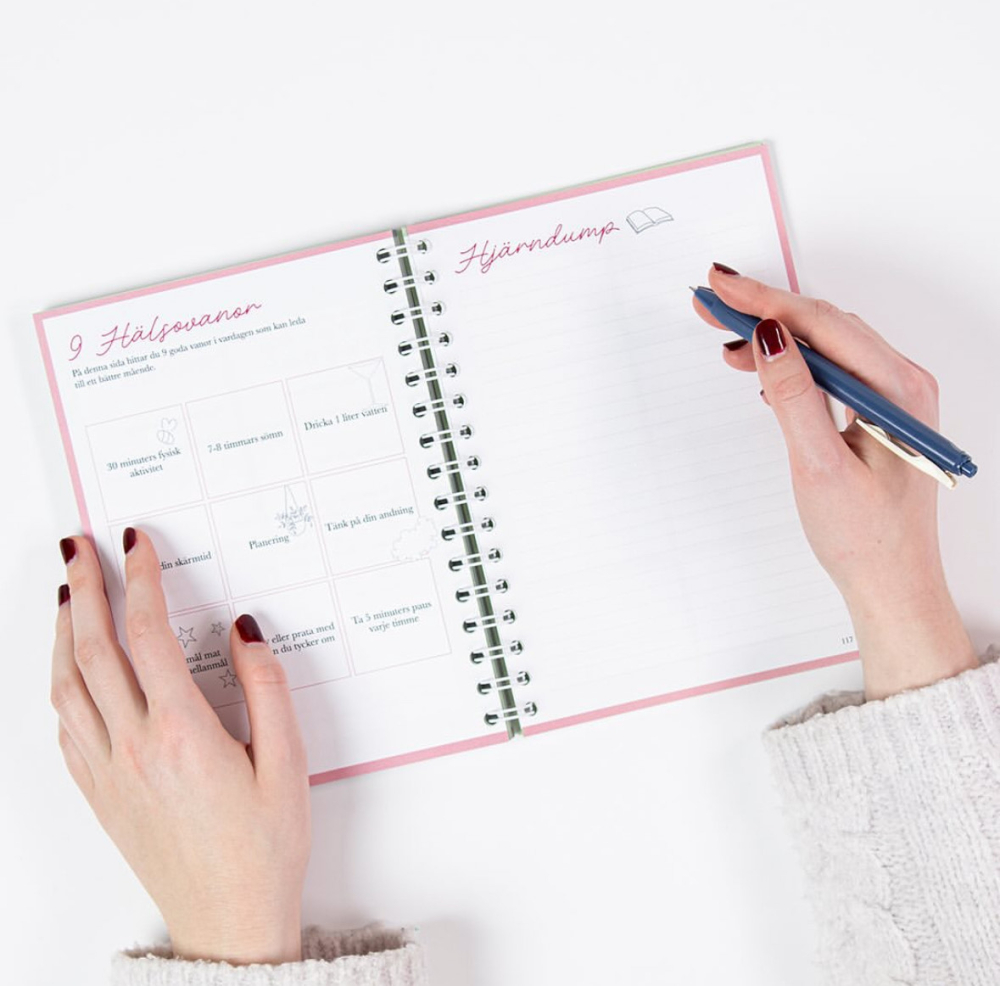 9 Hälsovanor
På denna sida hittar du 9 goda vanor i vardagen som kan leda
till en bättre mående.
30 minuters fysisk
aktivitet
7-8 timmars sömn
Dricka 1 liter vatten
din skärmtid
Planering
Tänk på din andning
mål mat
mellanmål
eller prata med
n du tycker om
Ta 5 minuters paus
varje timme
Hjärndump
117